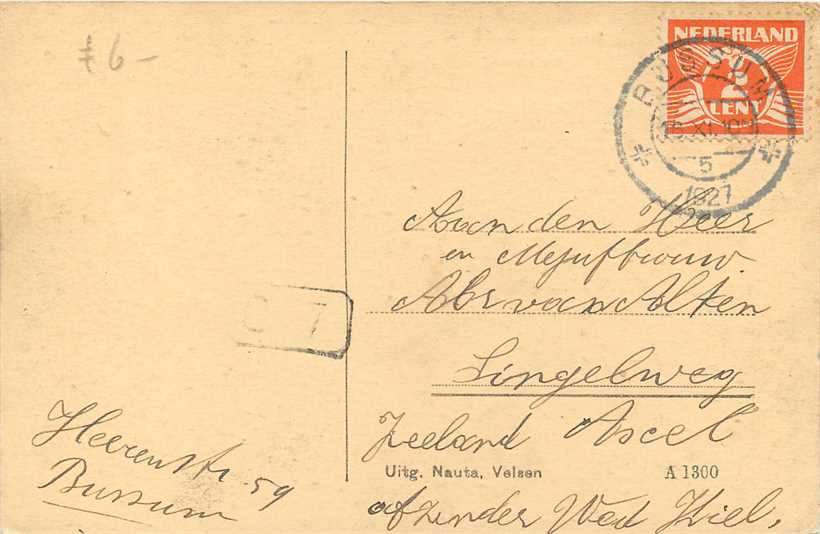 #6-
NEDERLAND
2
CENT
BUSSUM
5
1927
Aan den Heer
en Mejufbrouw
Abr van Alten
Singelweg
Zeeland Axel
Uitg. Nauta, Velsen A 1300
afzender Wed Kiel,
7
Heerenstr 59
Bussum